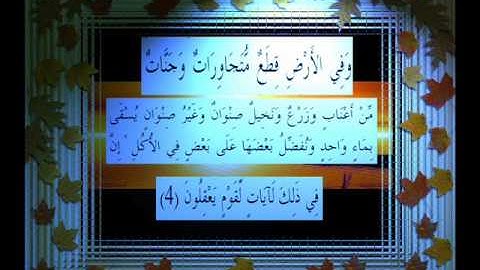 وَفِي الْأَرْضِ قِطَعٌ مُّتَجَاوِرَاتٌ وَجَنَّاتٌ
مِّنْ أَعْنَابٍ وَزَرْعٌ وَنَخِيلٌ صِنْوَانٌ وَغَيْرُ صِنْوَانٍ يُسْقَى
بِمَاءٍ وَاحِدٍ وَنُفَضِّلُ بَعْضَهَا عَلَى بَعْضٍ فِي الْأُكُلِ ۚ إِنَّ
فِي ذَلِكَ لَآيَاتٍ لِّقَوْمٍ يَعْقِلُونَ (4)